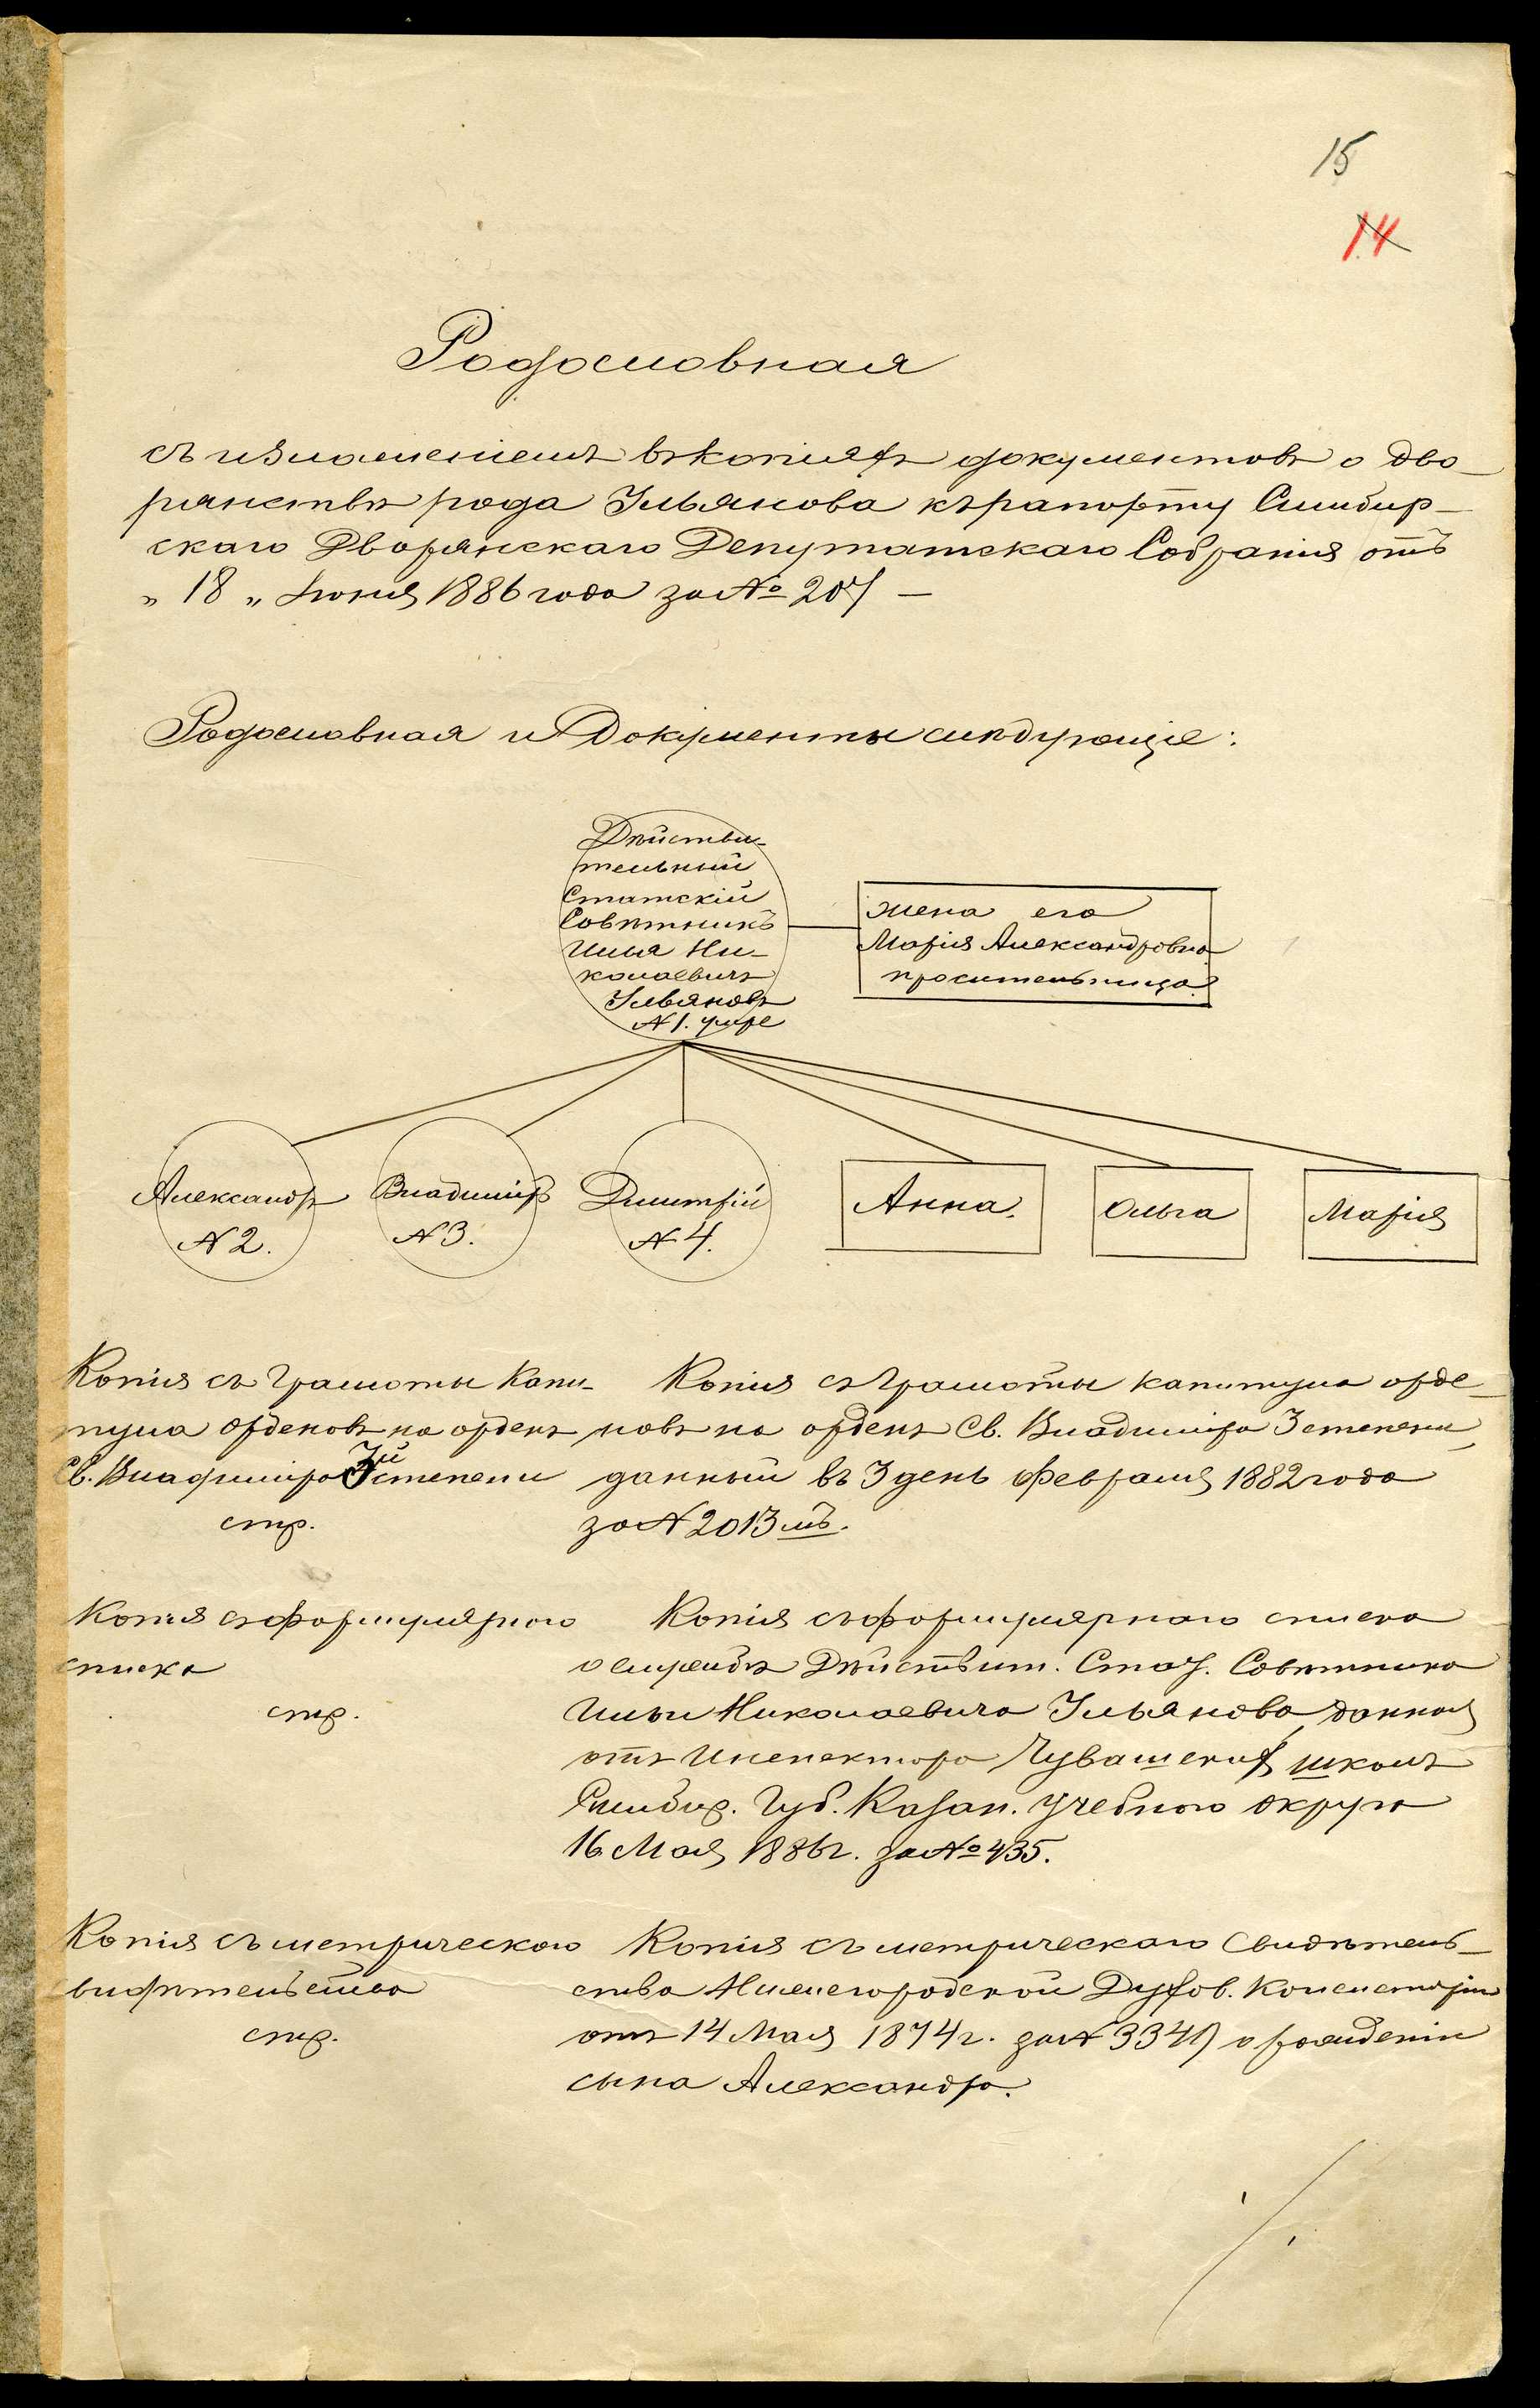 15
14
Родословная
съ изложеніемъ въ копіяхъ документовъ о дво-
рянствѣ рода Ульянова къ рапорту Симбир-
скаго Дворянскаго Депутатскаго Собранія отъ
„ 18 „ Іюня 1886 года за № 207 —
Родословная и Документы слѣдующіе:
Дѣйстви-
тельный
Статскій
Совѣтникъ
Илья Ни-
колаевичъ
Ульяновъ
№ 1. умре
жена его
Марія Александровна
просительница.
Александръ
№ 2.
Владиміръ
№ 3.
Дмитрій
№ 4.
Анна.
Ольга
Марія
Копія съ грамоты Капи-
тула Орденовъ на орденъ
Св. Владиміра 3й степени
стр.
Копія съ грамоты капитула орде-
новъ на орденъ Св. Владиміра 3 степени,
данный въ 3 день Февраля 1882 года
за № 2013 мъ.
Копія съ формулярнаго
списка
стр.
Копія съ формулярнаго списка
о службѣ Дѣйствит. Стат. Совѣтника
Ильи Николаевича Ульянова, данная
отъ Инспектора Чувашскихъ школъ
Симбир. Губ. Казан. Учебнаго округа
16 Мая 1886 г. за № 435.
Копія съ метрическаго
свидѣтельства
стр.
Копія съ метрическаго Свидѣтель-
ства Нижегородской Духов. Консисторіи
отъ 14 Мая 1874 г. за № 3341 о рожденіи
сына Александра.